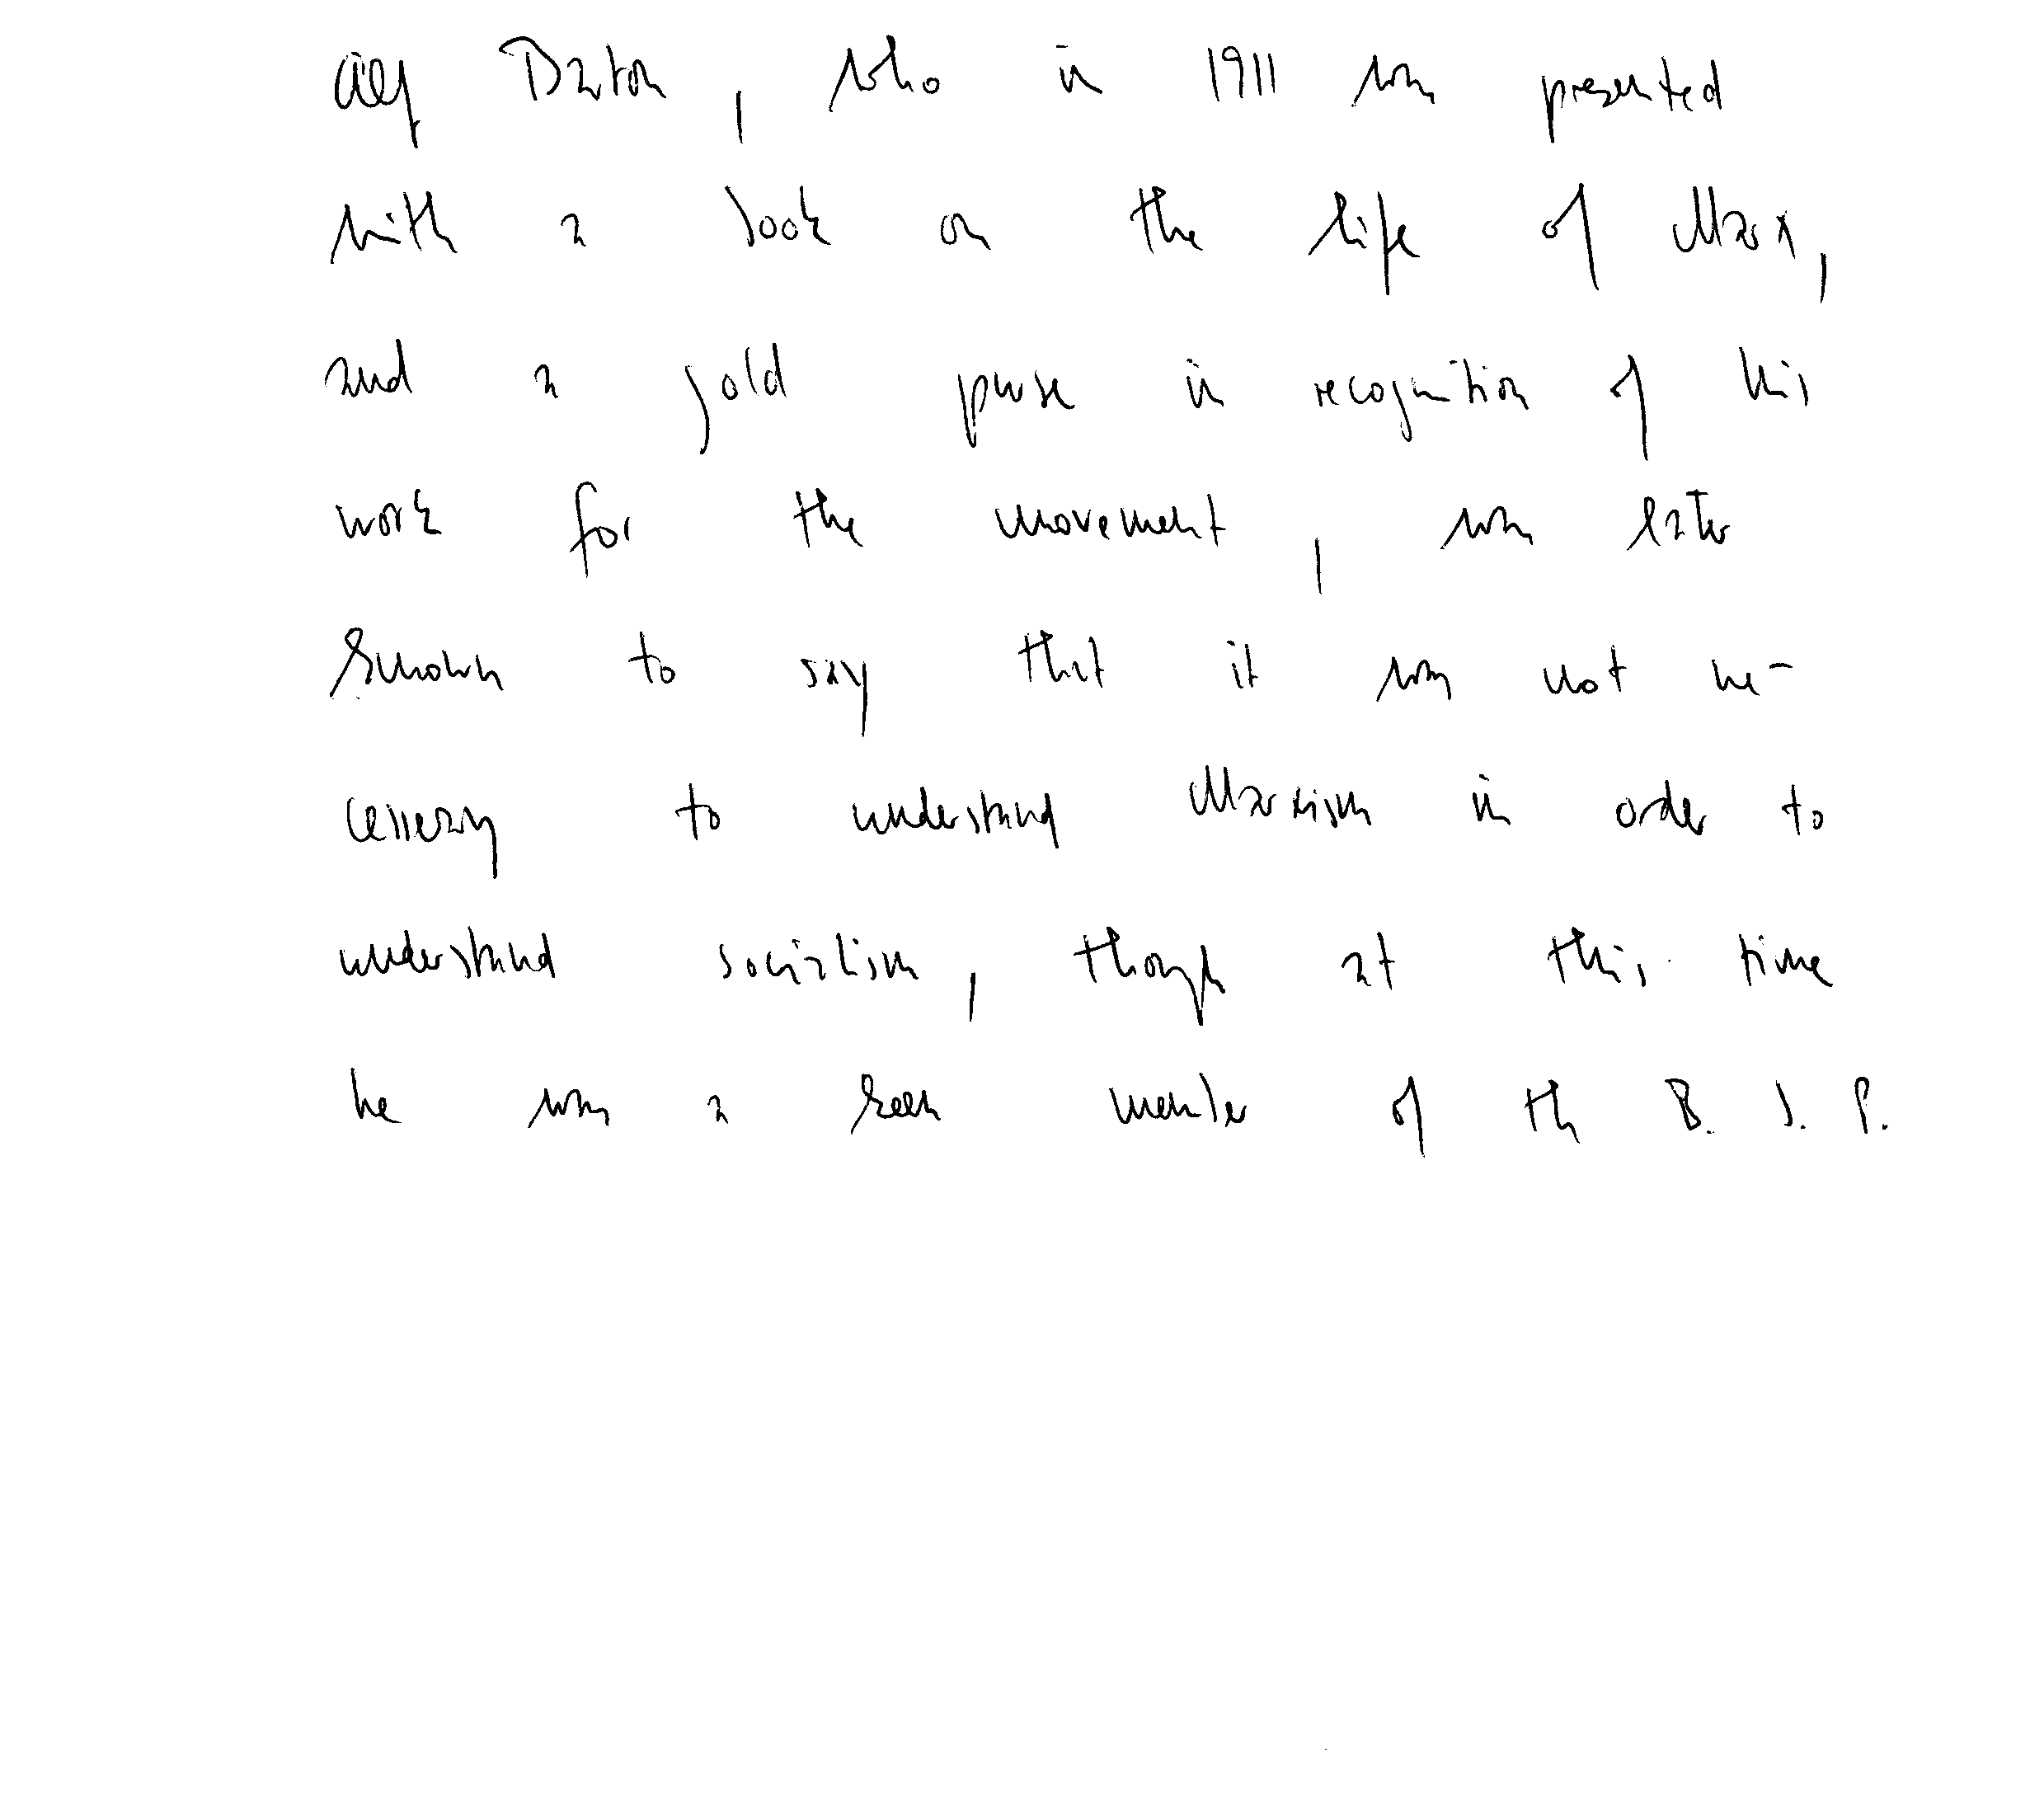 Alf Barton, who in 1911 was presented
with a book on the life of Marx,
and a gold purse in recognition of his
work for the movement, was later
known to say that it was not ne-
cessary to understand Marxism in order to
understand socialism, though at this time
he was a keen member of the B. S. P.